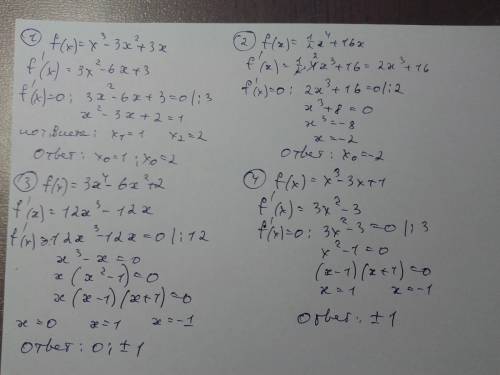 ① f(x)=x³-3x²+3x
f'(x)=3x²-6x+3
f'(x)=0; 3x²-6x+3=0 |:3
x²-3x+2=1
по т. Виета: x₁=1 x₂=2
Ответ: x₀=1; x₀=2
② f(x)=1/2x⁴+16x
f'(x)=1/2·4x³+16=2x³+16
f'(x)=0; 2x³+16=0 |:2
x³+8=0
x³=-8
x=-2
Ответ: x₀=-2
③ f(x)=3x⁴-6x²+2
f'(x)=12x³-12x
f'(x)=12x³-12x=0 |:12
x³-x=0
x(x²-1)=0
x(x-1)(x+1)=0
x=0 x=1 x=-1
Ответ: 0; ±1
④ f(x)=x³-3x+1
f'(x)=3x²-3
f'(x)=0; 3x²-3=0 |:3
x²-1=0
(x-1)(x+1)=0
x=1 x=-1
Ответ: ±1